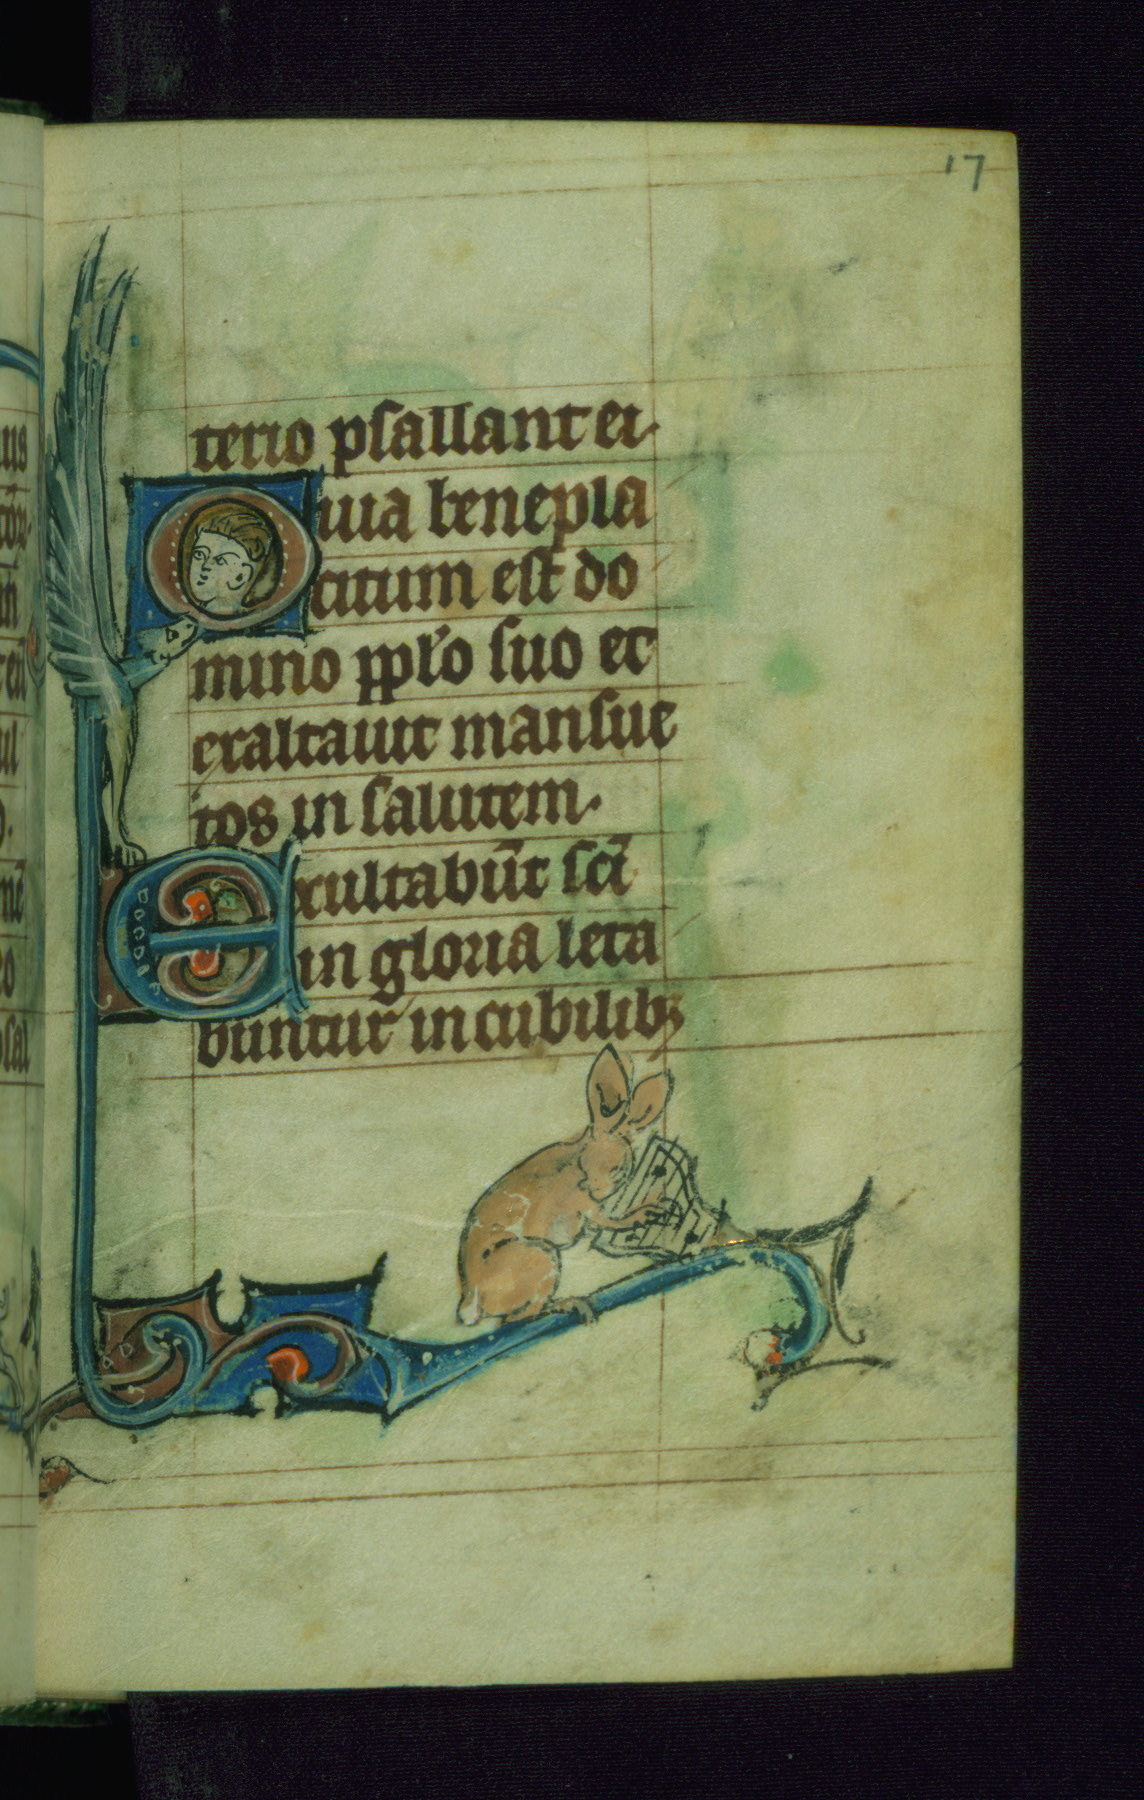 17
terio psallant ei.
Quia benepla
citum est do
mino pplo suo et
exaltauit mansue
tos in salutem.
Exultabūt sci
in gloria leta
buntur in cubilib;